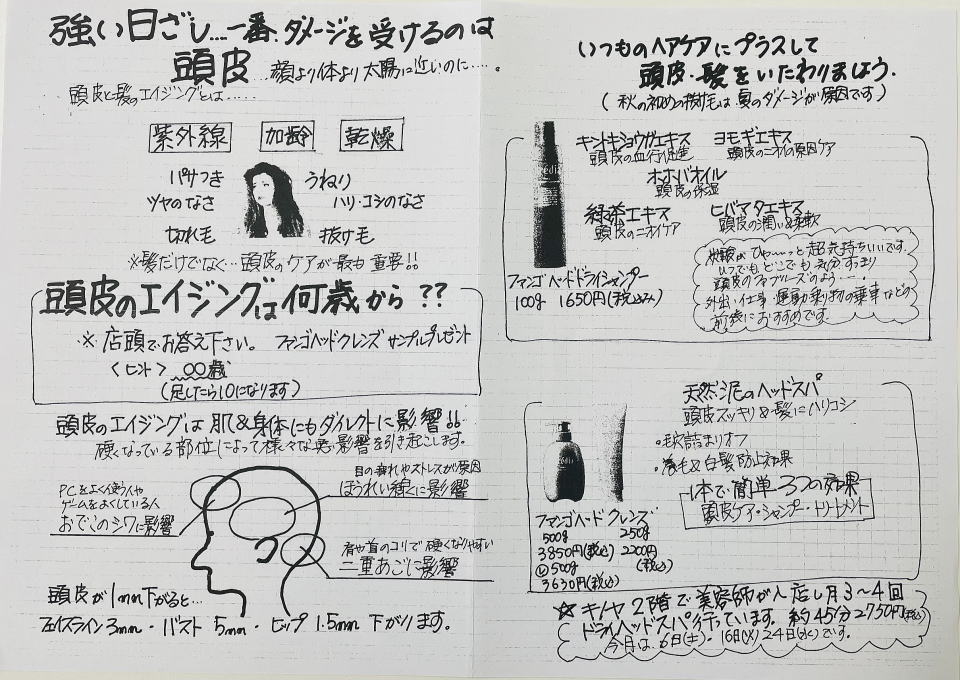 強い日ざし...一番.ダメージを受けるのは
頭皮...顔より体より太陽に近いのに・・・。
頭皮と髪のエイジングとは.....
紫外線 加齢 乾燥
パサつき うねり
ツヤのなさ ハリ・コシのなさ
切れ毛 抜け毛
※髪だけでなく...頭皮のケアが最も重要!!
頭皮のエイジングは何歳から??
※店頭でお答え下さい。 ファンゴヘッドクレンズ サンプルプレゼント
<ヒント> ○○歳
(足したら10になります)
頭皮のエイジングは肌&身体にもダイレクトに影響!!
硬くなっている部位によって様々な悪影響を引き起こします。
PCをよく使う人や
ゲームをよくしている人
おでこのシワに影響
目の疲れやストレスが原因
ほうれい線に影響
肩や首のコリで硬くなりやすい
二重あごに影響
頭皮が1mm下がると...
フェイスライン3mm・バスト5mm・ヒップ1.5mm下がります。
いつものヘアケアにプラスして
頭皮・髪をいたわりましょう.
(秋の初めの抜け毛は夏のダメージが原因です)
キントキショウガエキス
頭皮の血行促進
ヨモギエキス
頭皮のニオイの原因ケア
ホホバオイル
頭皮の保湿
緑茶エキス
頭皮のニオイケア
ヒバマタエキス
頭皮の潤い&柔軟
ファンゴヘッドドライシャンプー
100g 1650円(税込み)
炭酸がひゃ〜っと超気持ちいいです。
いつでもどこでも気分すっきり
頭皮のファブリーズのよう・・・.
外出・仕事・運動・乗り物の乗車などの
前後におすすめです。
天然泥のヘッドスパ
頭皮スッキリ&髪にハリコシ
•毛穴詰まりオフ
•薄毛&白髪防止効果
1本で簡単3つの効果
頭皮ケア・シャンプー・トリートメント
ファンゴヘッドクレンズ
500g 250g
3850円(税込) 2200円(税込)
500g
3630円(税込)
☆キノヤ2階で美容師が入店し月3〜4回
ドライヘッドスパ行っています。約45分2750円(税込)
今月は、6日(土)・16日(火)24日(水)です。